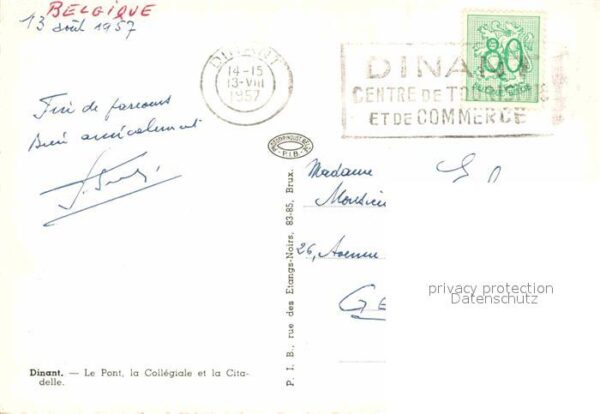 BELGIQUE
13 août 1957
DINANT
14-15
13-VIII
1957
DINANT
CENTRE DE TOURISME
ET DE COMMERCE
80
Fin de parcours
Bien amicalement
P.I.B.
Madame
Monsieur
26, Avenue
GE
privacy protection
Datenschutz
P. I. B., rue des Etangs-Noirs, 83-85, Brux.
Dinant. — Le Pont, la Collégiale et la Cita-
delle.